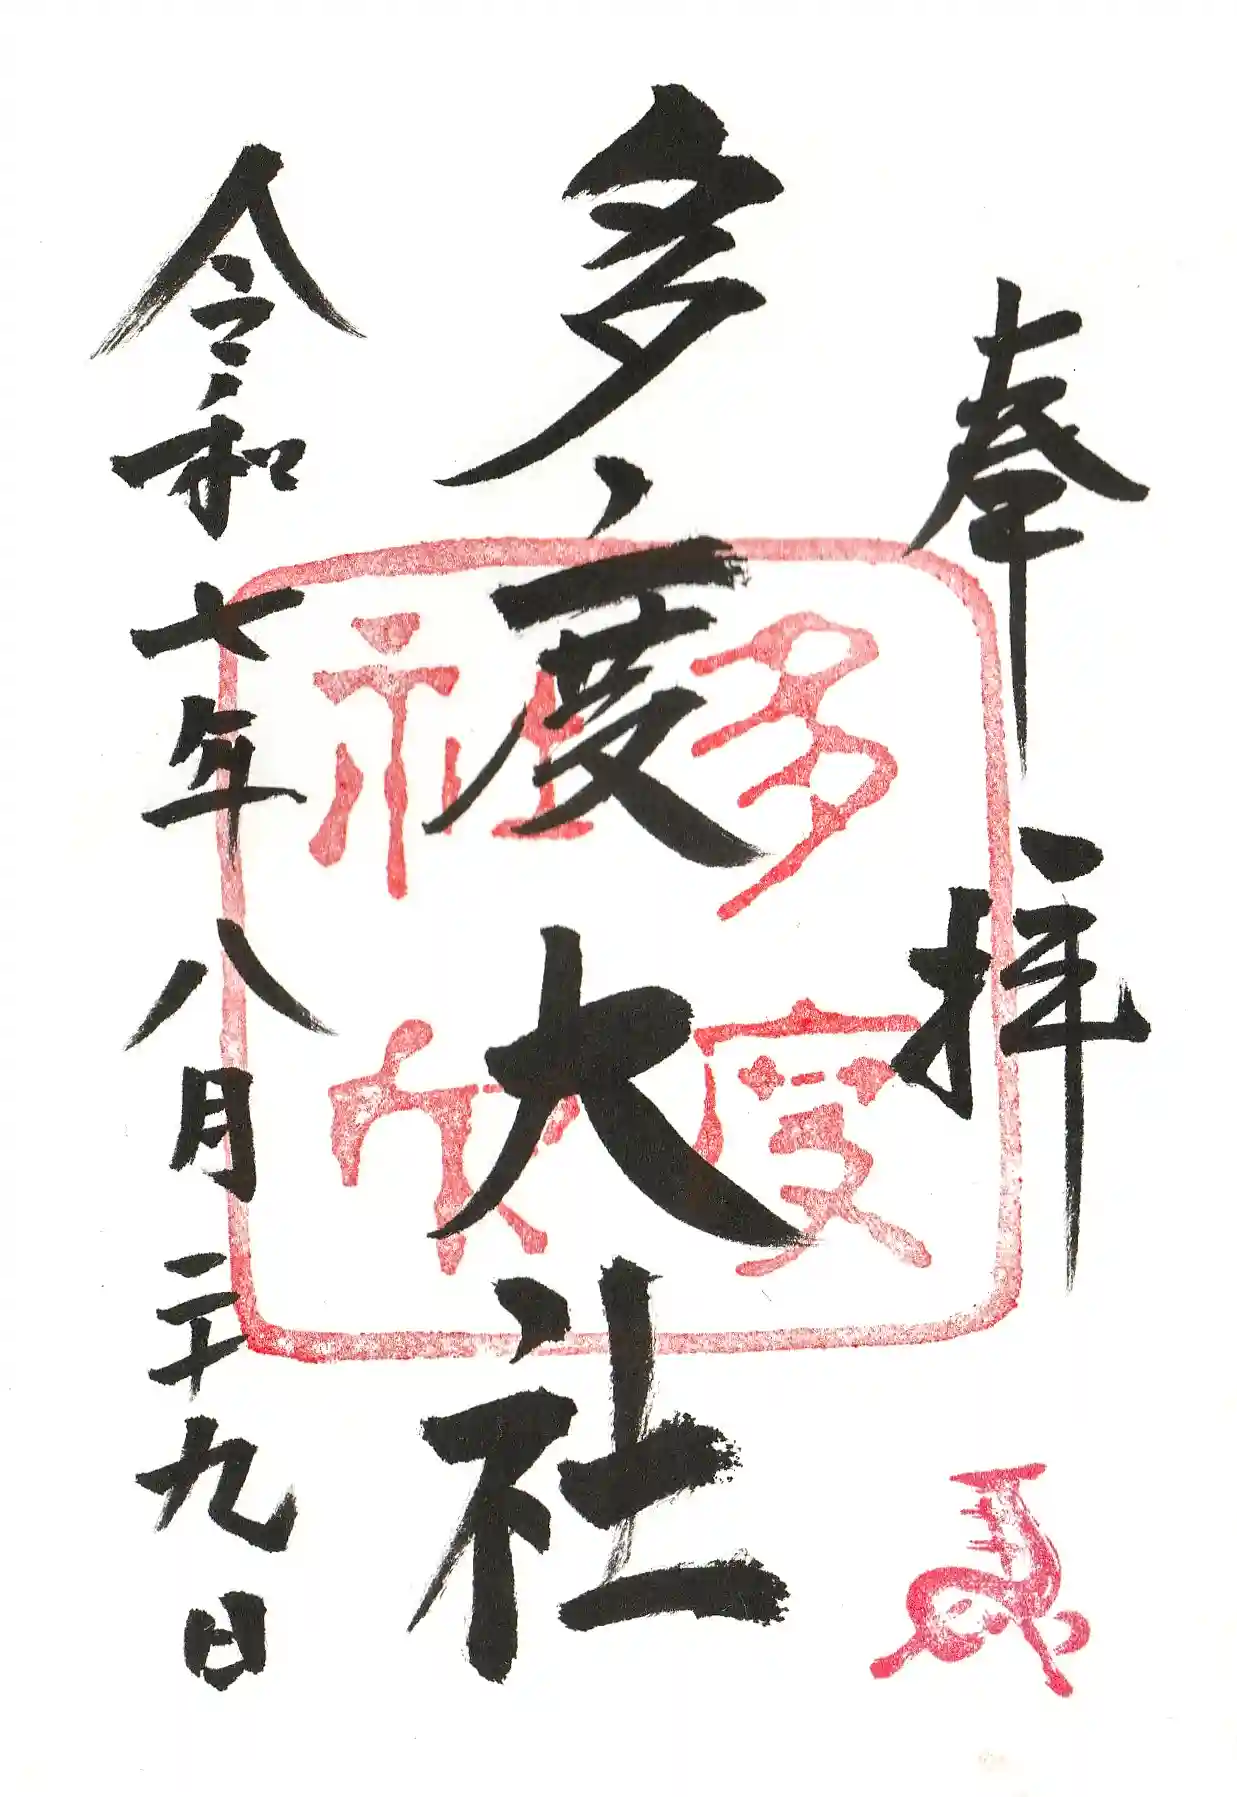 奉拝
多度大社
令和七年八月二十九日
多度
社
馬